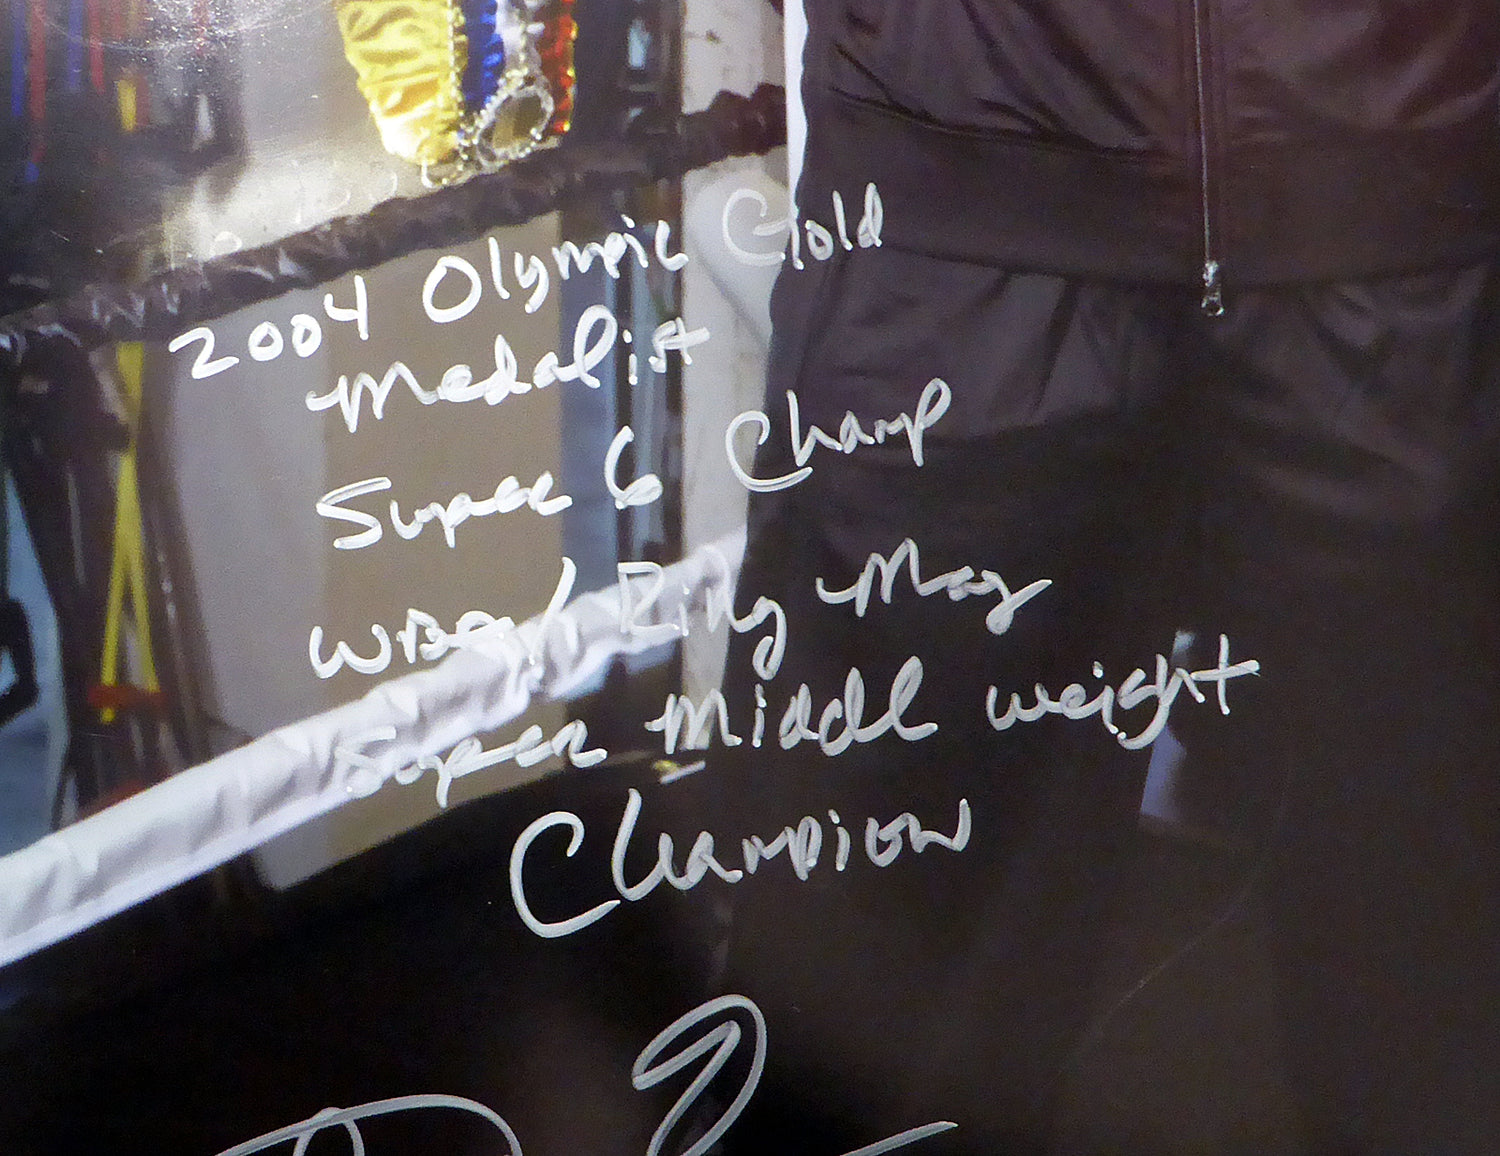 2004 Olympic Gold
Medalist
Super 6 Champ
Ring Mag
Super Middl weight
Champion